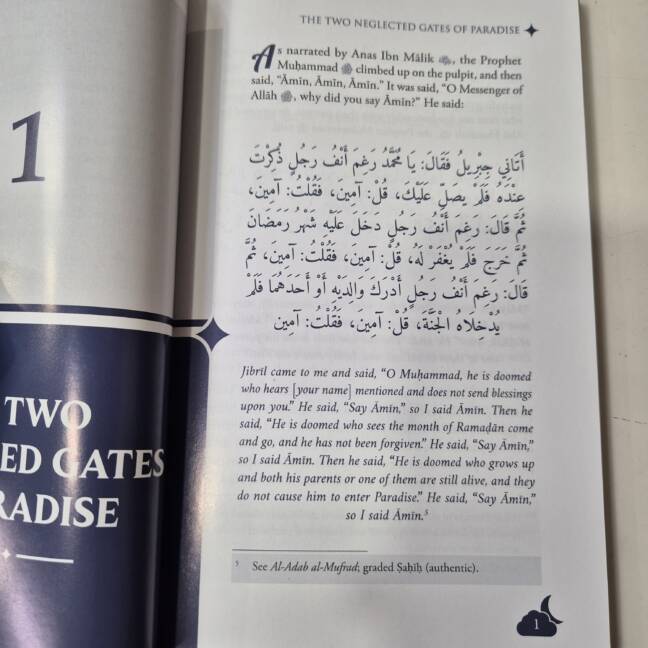 1
TWO
ED GATES
RADISE
THE TWO NEGLECTED GATES OF PARADISE
As narrated by Anas Ibn Mālik ؓ, the Prophet
Muḥammad ﷺ climbed up on the pulpit, and then
said, “Āmīn, Āmīn, Āmīn.” It was said, “O Messenger of
Allāh ﷺ, why did you say Āmīn?” He said:
أَتَانِي جِبْرِيلُ فَقَالَ: يَا مُحَمَّدُ رَغِمَ أَنْفُ رَجُلٍ ذُكِرْتَ
عِنْدَهُ فَلَمْ يصَلِّ عَلَيْكَ، قُلْ: آمِينَ، فَقُلْتُ: آمِينَ،
ثُمَّ قَالَ: رَغِمَ أَنْفُ رَجُلٍ دَخَلَ عَلَيْهِ شَهْرُ رَمَضَانَ
ثُمَّ خَرَجَ فَلَمْ يُغْفَرْ لَهُ، قُلْ: آمِينَ، فَقُلْتُ: آمِينَ، ثُمَّ
قَالَ: رَغِمَ أَنْفُ رَجُلٍ أَدْرَكَ وَالِدَيْهِ أَوْ أَحَدَهُمَا فَلَمْ
يُدْخِلَاهُ الْجَنَّةَ، قُلْ: آمِينَ، فَقُلْتُ: آمِين
Jibrīl came to me and said, “O Muḥammad, he is doomed
who hears [your name] mentioned and does not send blessings
upon you.” He said, “Say Āmīn,” so I said Āmīn. Then he
said, “He is doomed who sees the month of Ramaḍān come
and go, and he has not been forgiven.” He said, “Say Āmīn,”
so I said Āmīn. Then he said, “He is doomed who grows up
and both his parents or one of them are still alive, and they
do not cause him to enter Paradise.” He said, “Say Āmīn,”
so I said Āmīn.⁵
5 See Al-Adab al-Mufrad; graded Ṣaḥīḥ (authentic).
1